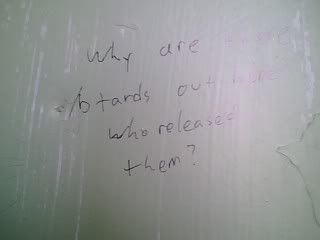 Why are there
/btards out here
who released
them?